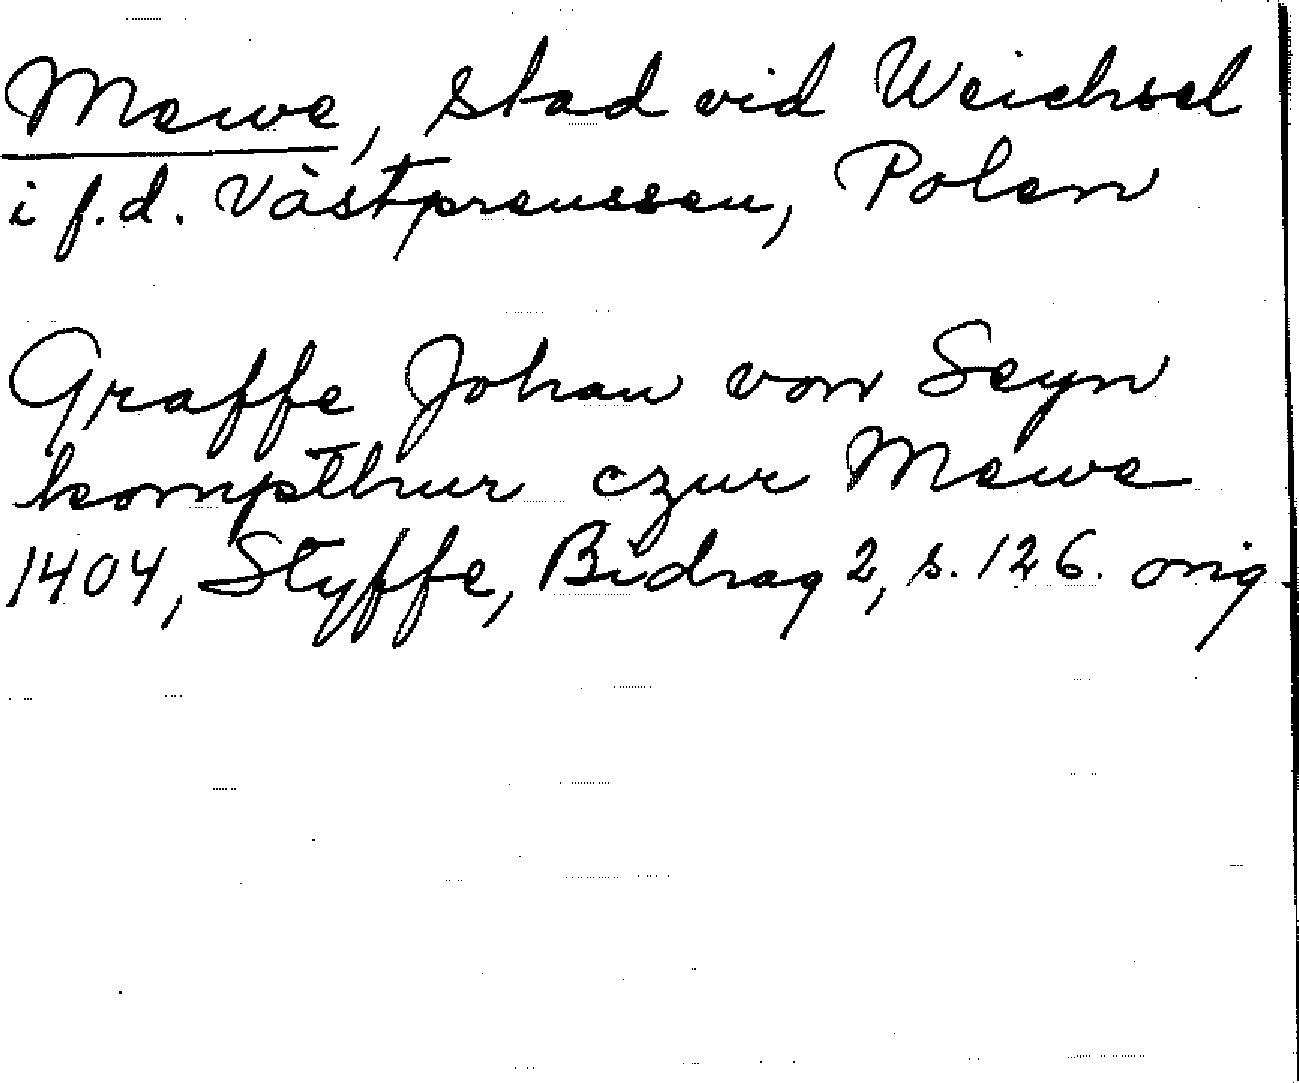 Mewe, stad vid Weichsel
i f.d. Västpreussen, Polen
Graffe Johan von Seyn
kompthur czur Mewe
1404, Styffe, Bidrag 2, s. 126. orig